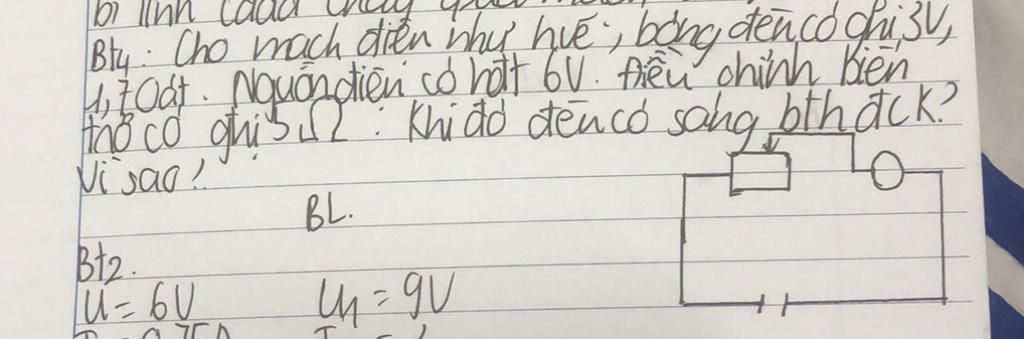 b) tính
Bt4: Cho mạch điện như hvẽ, bóng đèn có ghi 3V,
1,7 Oát. Nguồn điện có hđt 6V. Điều chỉnh biến
trở có ghi 5Ω. Khi đó đèn có sáng bth đc K?
Vì sao?
BL.
Bt2.
U = 6V U1 = 9V